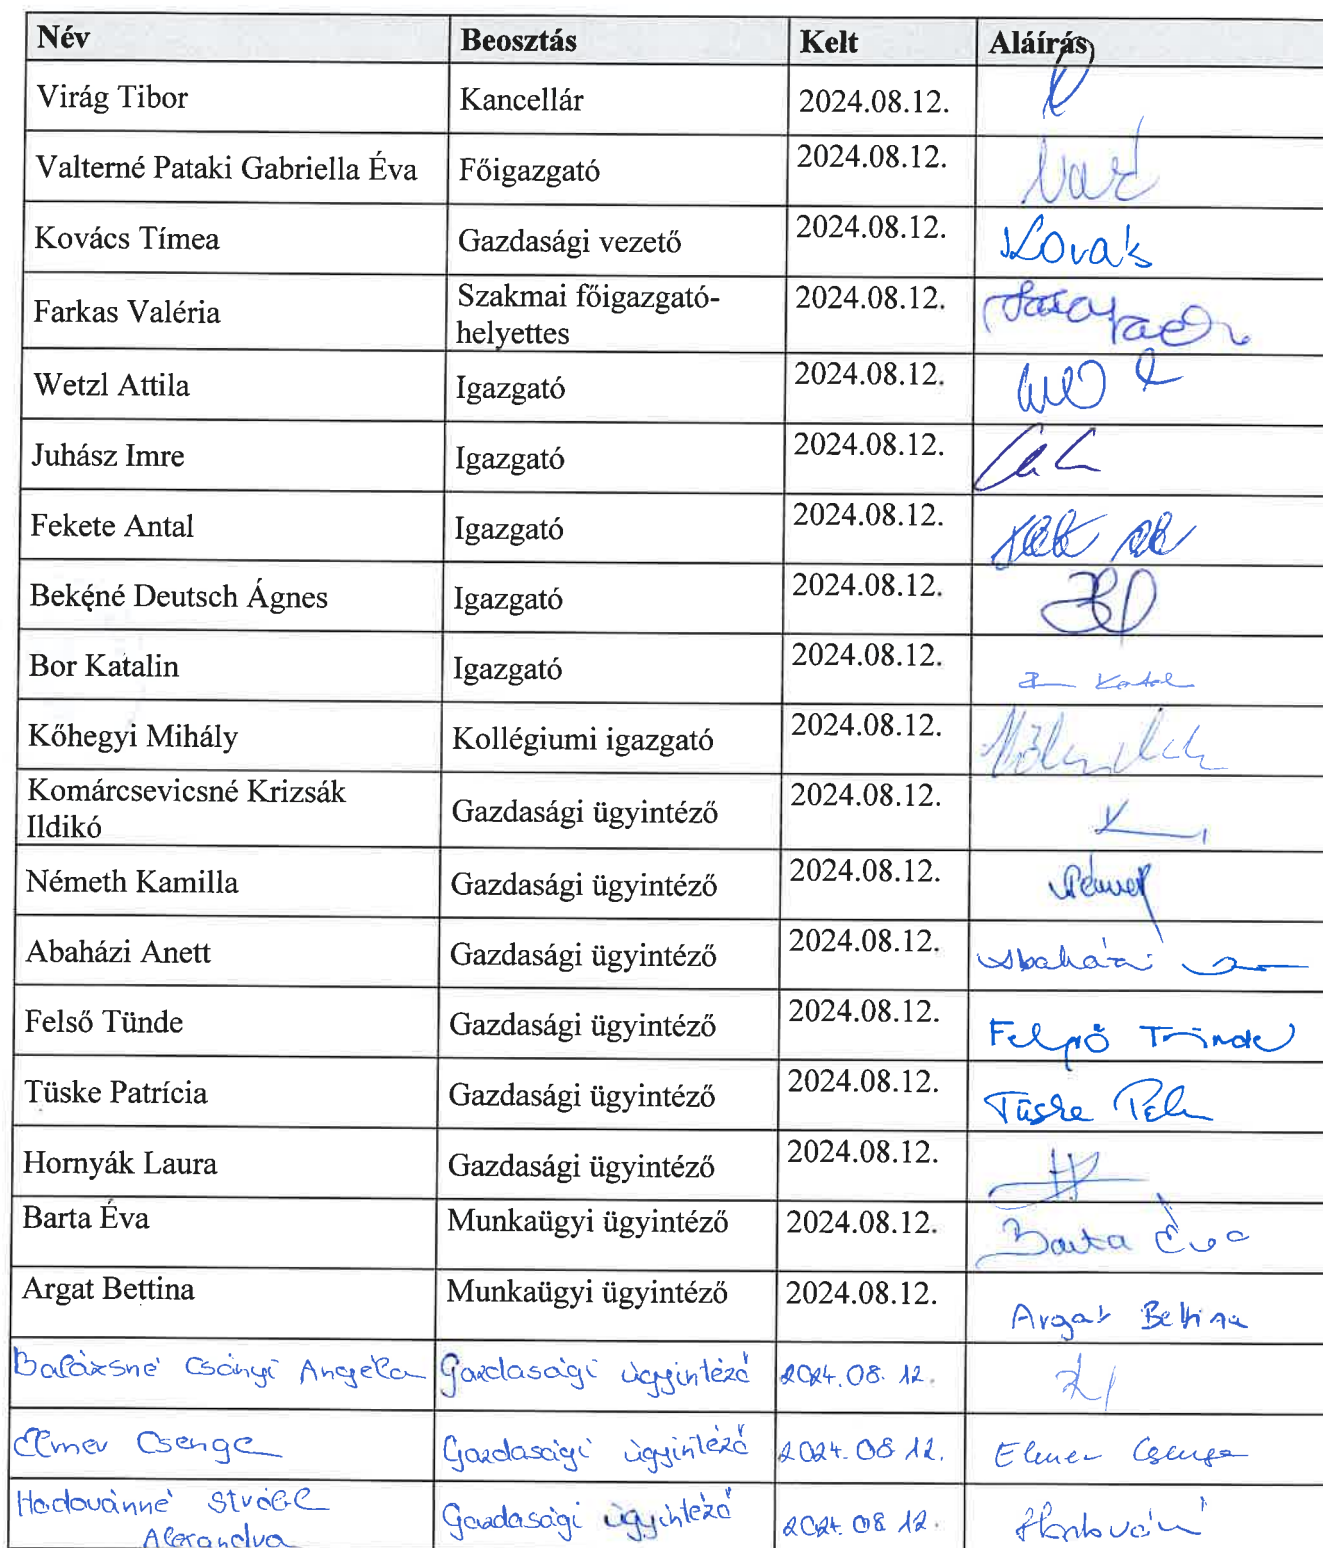 Név Beosztás Kelt Aláírás
Virág Tibor Kancellár 2024.08.12.
Valterné Pataki Gabriella Éva Főigazgató 2024.08.12.
Kovács Tímea Gazdasági vezető 2024.08.12. Kovács
Farkas Valéria Szakmai főigazgató- 2024.08.12.
helyettes
Wetzl Attila Igazgató 2024.08.12.
Juhász Imre Igazgató 2024.08.12.
Fekete Antal Igazgató 2024.08.12.
Bekéné Deutsch Ágnes Igazgató 2024.08.12.
Bor Katalin Igazgató 2024.08.12.
Kőhegyi Mihály Kollégiumi igazgató 2024.08.12.
Komárcsevicsné Krizsák Gazdasági ügyintéző 2024.08.12.
Ildikó
Németh Kamilla Gazdasági ügyintéző 2024.08.12.
Abaházi Anett Gazdasági ügyintéző 2024.08.12. Abaházi
Felső Tünde Gazdasági ügyintéző 2024.08.12. Felső Tünde
Tüske Patrícia Gazdasági ügyintéző 2024.08.12. Tüske
Hornyák Laura Gazdasági ügyintéző 2024.08.12.
Barta Éva Munkaügyi ügyintéző 2024.08.12. Barta Éva
Argat Bettina Munkaügyi ügyintéző 2024.08.12. Argat Bettina
Balázsné Csányi Angéla Gazdasági ügyintéző 2024.08.12.
Elmer Csenge Gazdasági ügyintéző 2024.08.12. Elmer Csenge
Hadovánné Stróbl Gazdasági ügyintéző 2024.08.12.
Alexandra